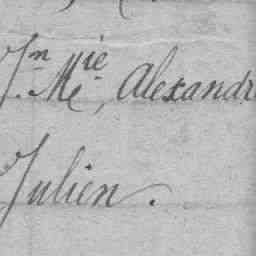 Jn. Mie, Alexandre
Julien.